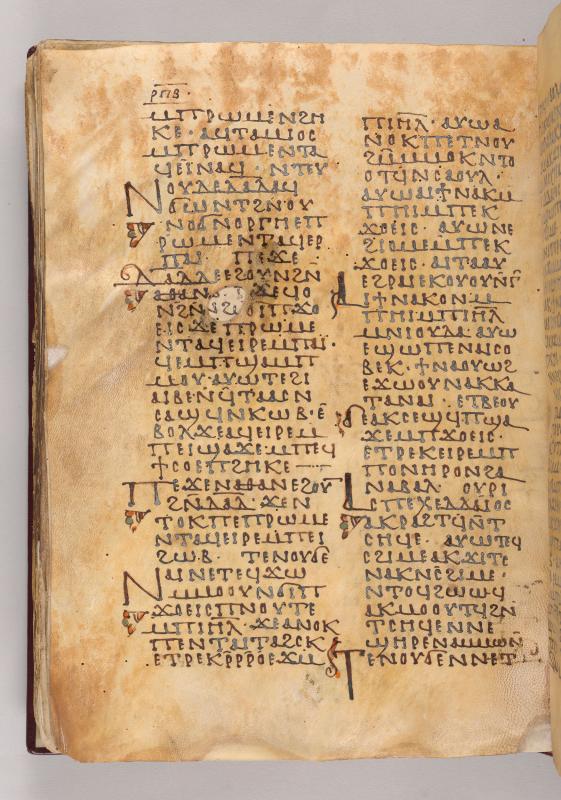 ⲣⲡⲃ
ⲙⲡⲣⲱⲙⲉⲛϩⲏ
ⲕⲉ · ⲁϥⲧⲁⲙⲓⲟⲥ
ⲙⲡⲣⲱⲙⲉⲛⲧⲁ
ϥⲉⲓⲛⲁϥ · ⲛⲧⲉⲩ
ⲛⲟⲩⲇⲉⲁⲇⲁⲇ
ϭⲱⲛⲧϩⲛⲟⲩ
ⲛⲟϭⲛⲟⲣⲅⲏⲉⲡ
ⲣⲱⲙⲉⲛⲧⲁϥⲉⲣ
ⲡⲁⲓ · ⲡⲉϫⲉ
ⲇⲁⲇ ⲇⲉⲉϩⲟⲩⲛϩⲛ
ⲛⲁⲑⲁⲛ ϫⲉϥⲟ
ⲛϩⲛϭⲓⲡϫⲟ
ⲉⲓⲥ ϫⲉⲡⲣⲱⲙⲉ
ⲛⲧⲁϥⲉⲓⲣⲉⲙⲡⲁⲓ ·
ϥⲉⲙⲡϣⲁⲙⲡ
ⲙⲟⲩ · ⲁⲩⲱⲧⲉϩⲓ
ⲁⲓⲃⲉⲛϥⲧⲁⲁⲥⲛ
ⲥⲁϣϥⲛⲕⲱⲃ · ⲉ
ⲃⲟⲗϫⲉⲁϥⲉⲓⲣⲉⲙ
ⲡⲉⲓϣⲁϫⲉⲙⲡⲉϥ
ϯⲥⲟⲉⲡϩⲏⲕⲉ
ⲡⲉϫⲉⲛⲁⲑⲁⲛⲉϩⲟⲩ
ϩⲛⲇⲁⲇ · ϫⲉⲛ
ⲧⲟⲕⲡⲉⲡⲣⲱⲙⲉ
ⲛⲧⲁϥⲉⲓⲣⲉⲙⲡⲉⲓ
ϩⲱⲃ · ⲧⲉⲛⲟⲩϭⲉ
ⲛⲁⲓⲛⲉⲧⲉϥϫⲱ
ⲙⲙⲟⲟⲩⲛϭⲓⲡ
ϫⲟⲉⲓⲥⲡⲛⲟⲩⲧⲉ
ⲙⲡⲓⲏⲗ · ϫⲉⲁⲛⲟⲕ
ⲡⲉⲛⲧⲁⲓⲧⲁϩⲥⲕ
ⲉⲧⲣⲉⲕⲣⲣⲣⲟⲉϫⲙ
ⲡⲓⲏⲗ · ⲁⲩⲱⲁ
ⲛⲟⲕⲡⲉⲧⲛⲟⲩ
ϩⲙⲙⲟⲕⲛⲧⲟ
ⲟⲧϥⲛⲥⲁⲟⲩⲗ ·
ⲁⲩⲱⲁⲓϯⲛⲁⲕⲙ
ⲡⲏⲓⲙⲡⲉⲕ
ϫⲟⲉⲓⲥ · ⲁⲩⲱⲛⲉ
ϩⲓⲟⲙⲉⲙⲡⲉⲕ
ϫⲟⲉⲓⲥ · ⲁⲓⲧⲁⲁⲩ
ⲉϩⲣⲁⲓⲉⲕⲟⲩⲟⲩⲛⲅ
ⲁⲓϯⲛⲁⲕⲟⲛⲙ
ⲡⲏⲓⲙⲡⲓⲏⲗ
ⲙⲛⲓⲟⲩⲇⲁ · ⲁⲩⲱ
ⲉϣⲱⲡⲉⲛⲁⲓⲥⲟ
ⲃⲉⲕ · ϯⲛⲁⲟⲩⲱϩ
ⲉϫⲱⲟⲩⲛⲁⲕⲕⲁ
ⲧⲁⲛⲁⲓ · ⲉⲧⲃⲉⲟⲩ
ϭⲉⲁⲕⲥⲉϣϥⲡϣⲁ
ϫⲉⲙⲡϫⲟⲉⲓⲥ ·
ⲉⲧⲣⲉⲕⲉⲓⲣⲉⲙⲡ
ⲡⲟⲛⲏⲣⲟⲛϩⲁ
ⲛⲁⲃⲁⲗ · ⲟⲩⲣⲓ
ⲁⲥⲡⲉⲭⲉⲗⲇⲁⲓⲟⲥ
ⲁⲕⲣⲁϩⲧϥⲛⲧ
ⲥⲏϥⲉ · ⲁⲩⲱⲧⲉϥ
ⲥϩⲓⲙⲉⲁⲕϫⲓⲧⲥ
ⲛⲁⲕⲛⲥϩⲓⲙⲉ ·
ⲛⲧⲟϥϩⲱⲱϥ
ⲁⲕⲙⲟⲟⲩⲧϥϩⲛ
ⲧⲥⲏϥⲉⲛⲛⲉ
ϣⲏⲣⲉⲛⲁⲙⲙⲱⲛ
ⲧⲉⲛⲟⲩϭⲉⲛⲛⲉⲧ